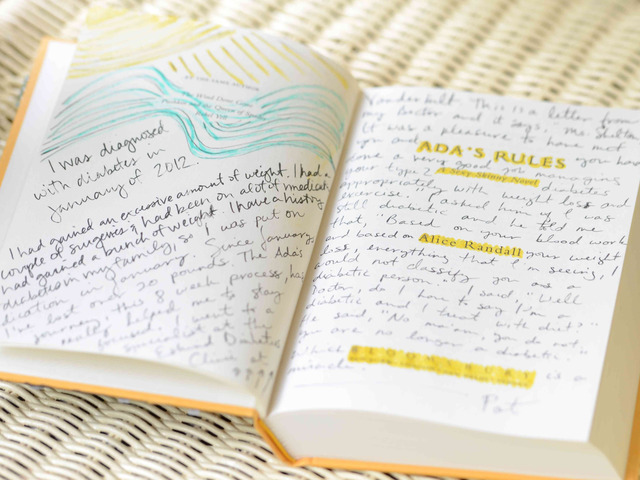 BY THE SAME AUTHOR
The Wind Done Gone
Pushkin and the Queen of Spades
Rebel Yell
I was diagnosed
with diabetes in
january of 2012.
I had gained an excessive amount of weight. I had a
couple of surgeries & had been on alot of medicati
had gained a bunch of weight. I have a history
diabetes in my family, so I was put on
dication in january. Since january,
I've lost over 20 pounds. The Ada's
journey, this 8 week process, has
really helped me to stay
focused. I went to a
specialist at the
Diabetes
Clinic at
Vanderbilt. This is a letter from
my Doctor and it says, Ms. Shelton
It was a pleasure to have met
you and you have
ADA'S RULES
done a very good job managing
A Sexy Skinny Novel
your type 2 diabetes
appropriately with weight loss and
exercise. I asked him if I was
still diabetic and he told me
that, "Based on your blood work
and based on your weight
Alice Randall
loss everything that I'm seeing, I
would not classify you as a
diabetic person." I said, "Well
Doctor do I have to say I'm a
diabetic and I treat with diet?"
He said, "No ma'am, you do not."
You are no longer a diabetic."
which is a
BLOOMSBURY
miracle.
Pat